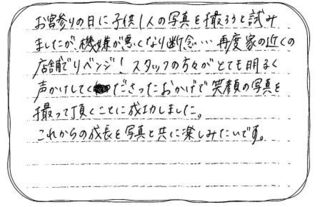 お宮参りの日に子供1人の写真を撮ろうと試み
ましたが機嫌が悪くなり断念…再度家の近くの
店舗でリベンジ！スタッフの方々がとても明るく
声かけしてくださったおかげで笑顔の写真を
撮って頂くことに成功しました。
これからの成長を写真と共に楽しみたいです。